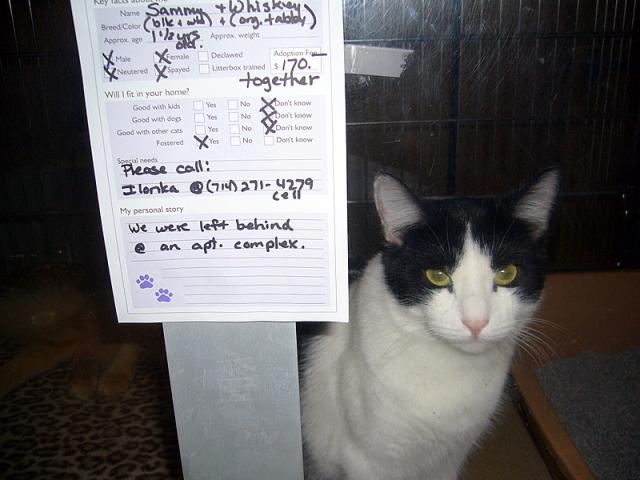 Key facts about me
Name Sammy + Whiskey
Breed/Color (blk + wht) + (org. + tabby)
Approx. age 1 1/2 yrs old. Approx. weight
X Male X Female Declawed Adoption Fee
X Neutered X Spayed Litterbox trained $ 170.–
together
Will I fit in your home?
Good with kids Yes No X Don't know
Good with dogs Yes No X Don't know
Good with other cats Yes No X Don't know
Fostered X Yes No Don't know
Special needs
Please call:
Ilonka @ (714) 271-4279
cell
My personal story
We were left behind
@ an apt. complex.